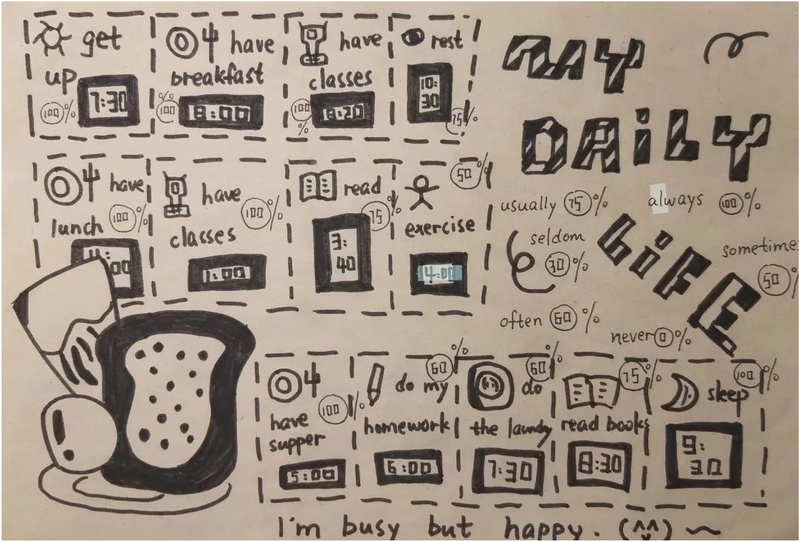 get
up 7:30
100%
have
breakfast
100% 8:00
have
classes
100% 8:20
rest
10:
30
75%
MY
DAILY
LIFE
usually 75%
always 100%
seldom
30%
sometime
50%
often 60%
never 0%
have
lunch 100%
have
classes
100%
1:00
read
75%
3:
40
50%
exercise
4:00
have
supper
100%
5:00
60%
do my
homework
6:00
60%
do
the laundy
7:30
75%
read books
8:30
100%
sleep
9:
30
I'm busy but happy. (^^)~